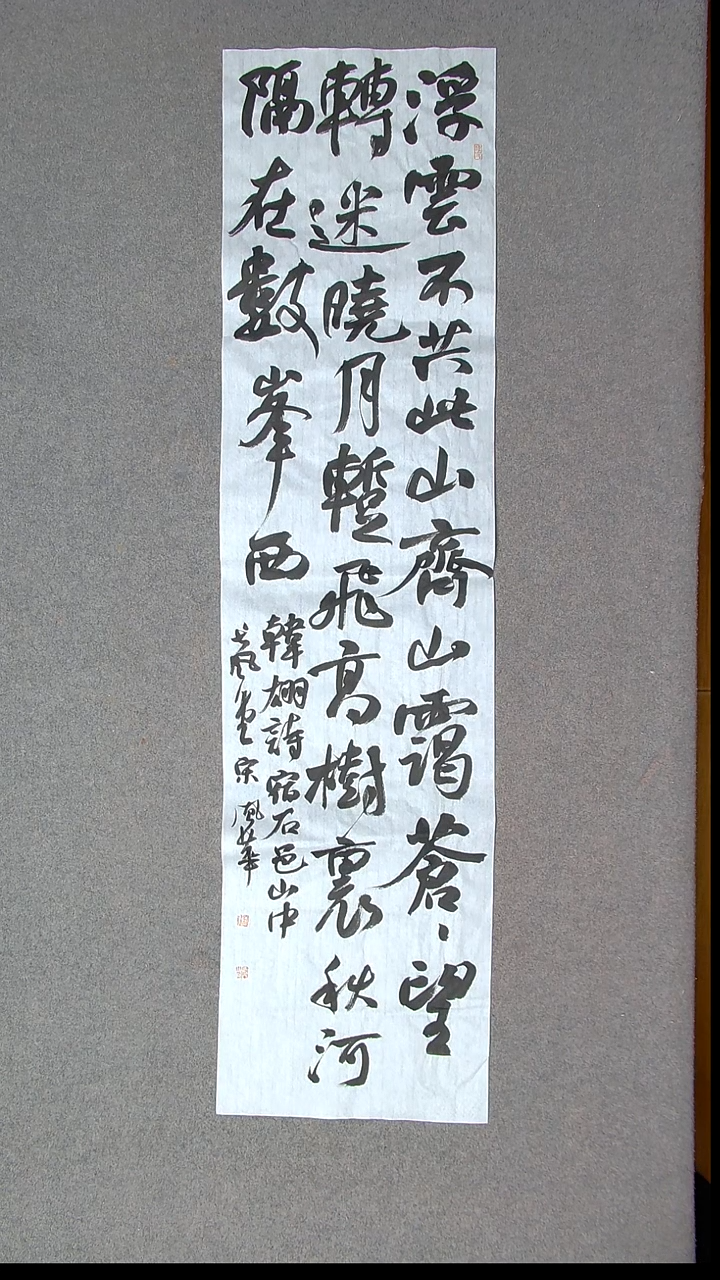 浮雲不共此山齊山靄蒼〻望
轉迷曉月蹔飛高樹裏秋河
隔在數峯西
韓翃詩宿石邑山中
宋風華